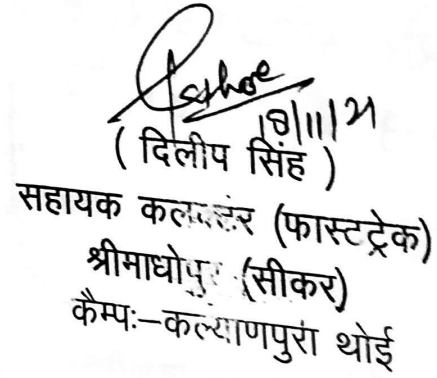 18/11/21
( दिलीप सिंह )
सहायक कलक्टर (फास्टट्रेक)
श्रीमाधोपुर (सीकर)
कैम्पः–कल्याणपुरा थोई